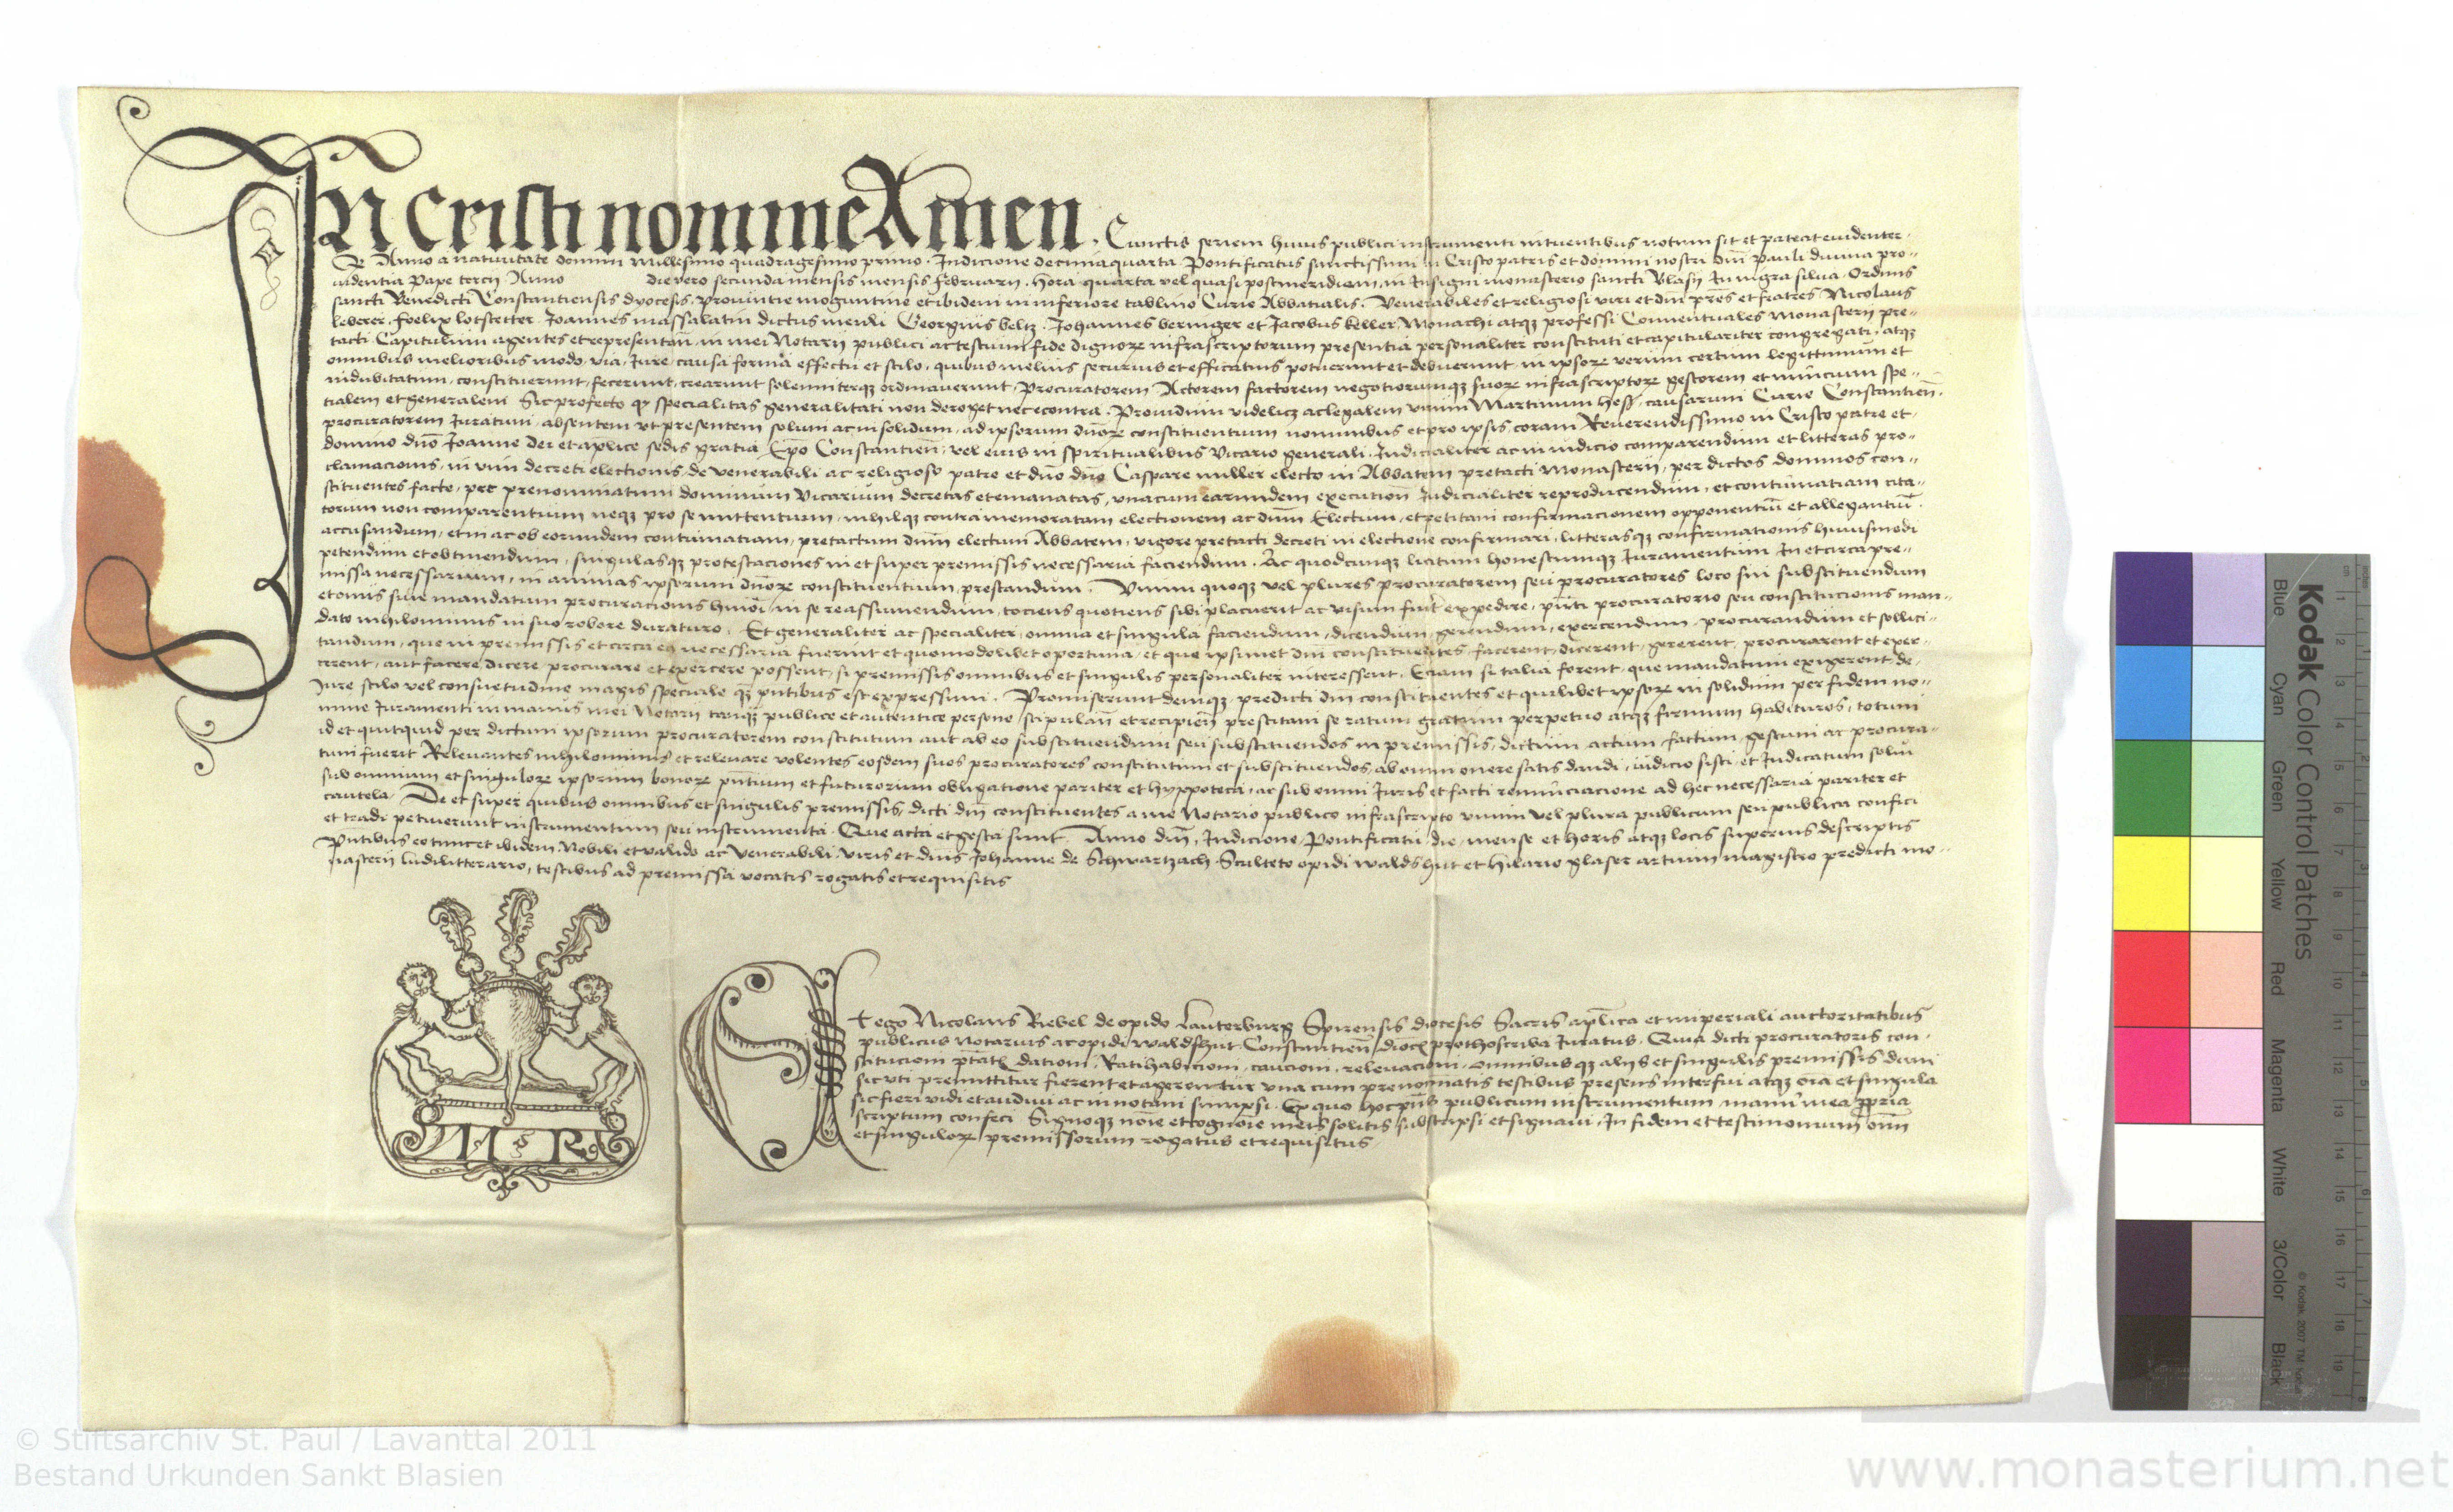 In Cristi nomine Amen. Cunctis seriem huius publici instrumenti intuentibus notum sit et pateat euidenter.
Anno a natiuitate domini Millesimo quadragesimo primo. Indicione decimaquarta Pontificatus sanctissimi in Cristo patris et domini nostri dn̄i Pauli diuina pro-
uidentia Pape tercij Anno die vero secunda mensis mensis Februarij. hora quarta vel quasi postmeridiem, in Insigni monasterio sancti Blasij In nigra silua. Ordinis
sancti Benedicti Constantiensis dyocesis, Prouintie moguntine et ibidem in inferiore tablino Curie Abbatialis. Venerabiles et religiosi viri et dn̄i pr̄es et fratres, Nicolaus
leberer. Foelix lotstetter Joannes massalatin dictus meuli Georgius beltz. Johannes beringer et Jacobus keller, Monachi atqȝ professi Conuentuales Monasterij pre-
tacti Capitulum agentes et representan̄. in mei Notarij publici ac testium fide dignorꝝ infrascriptorum presentia personaliter constituti et capitulariter congregati. atqȝ
omnibus melioribus modo, via, Iure, causa forma effectu et stilo, quibus melius securius et efficatius potuerunt et debuerunt, in ipsorꝝ verum certum legittimum et
indubitatum, constituerunt, fecerunt, crearunt solemniterqȝ ordinauerunt, Procuratorem Actorem factorem negotiorumqȝ suorꝝ infrascriptorꝝ gestorem et nuncium spe-
tialem et generalem Sic profecto qꝫ specialitas generalitati non deroget nec econtra. Prouidum videlicȝ ac legalem virum Martinum hess, causarum Curie Constantien̄.
procuratorem Iuratum, absentem vt presentem solum ac in solidum, ad ipsorum dn̄orꝝ constituentium nominibus et pro ipsis, coram Reuerendissimo in Cristo patre et
domino dn̄o Joanne dei et aplice sedis gratia Ep̄o Constantien̄, vel eius in spiritualibus Vicario generali. Iudicialiter ac in iudicio comparendum et litteras pro-
clamacionis, in vim decreti electionis de venerabili ac religioso patre et dn̄o dn̄o Caspare miller electo in Abbatem pretacti Monasterij, per dictos dominos con-
stituentes facto, per prenominatum dominum Vicarium decretas et emanatas, vnacum earundem execution̄ Iudicialiter reproducendum, et contumatiam cita-
torum non comparentium neqȝ pro se mittentium, nihilqȝ contra memoratam electionem ac dn̄m Electum, et petitam confirmacionem opponentiū et allegantiū.
accusandum, et in ac ob eorundem contumatiam, pretactum dn̄m electum Abbatem, vigore pretacti decreti in electione confirmari, litterasqȝ confirmationis huiusmodi
petendum et obtinendum, singulasqȝ protestaciones in et super premissis necessaria faciendum. Ac quodcunqȝ licitum honestumqȝ Iuramentum In et circa pre-
missa necessarium, in animas ipsorum dn̄orꝝ constituentium, prestandum. Vnum quoqȝ vel plures procuratorem seu procuratores loco sui substituendum
et onus siue mandatum procuracionis hmōi, in se reassumendum, tociens quotiens sibi placuerit ac visum fuerit expedire, pn̄ti procuratorio seu constitucionis man-
dato nihilominus in suo robore duraturo. Et generaliter ac specialiter, omnia et singula faciendum, dicendum, gerendum, exercendum, procurandum et sollici-
tandum, que in premissis et circa ea necessaria fuerint et quomodolibet oportuna, et que ipsimet dn̄i constituentes facerent, dicerent, gererent, procurarent et exer-
cerent, aut facere, dicere procurare et exercere possent, si premissis omnibus et singulis personaliter interessent. Etiam si talia forent, que mandatum exigerent de
Iure stilo vel consuetudine magis speciale qȝ pn̄tibus est expressum. Promiserunt denique predicti dn̄i constituentes et quilibet ipsorꝝ in solidum per fidem no-
mine Iuramenti in manus mei Notarij tanqȝ publice et autentice persone stipulan̄ et recipien̄ prestitam se ratum gratum perpetuo atqȝ firmum habituros, totum
id et quitquid per dictum ipsorum procuratorem constitutum aut ab eo substituendum seu substituendos in premissis, dictum actum factum gestum ac procura-
tum fuerit Releuantes nihilominus et releuare volentes eosdem suos procuratores constitutum et substituendos, ab omni onere satis dandi, iudicio sisti, et Iudicatum solui
sub omnium et singulorꝝ ipsorum bonorꝝ pn̄tium et futurorum obligatione pariter et hyppoteca, ac sub omni Iuris et facti renunciacione ad hec necessaria pariter et
cautela. De et super quibus omnibus et singulis premissis, dicti dn̄i constituentes a me Notario publico infrascripto vnum vel plura publicum seu publica confici
et tradi petiuerunt instrumentum seu instrumenta. Que acta et gesta sunt Anno dn̄i, Indicione, Pontificatu, die, mense et horis atqȝ locis superius descriptis
Pn̄tibus eotunc et ibidem, Nobili et valido ac Venerabili viris et dn̄is Johanne de Schwartzach Sculteto opidi waldshut et hilario glaser artium magistro predicti mo-
nasterij ludilitterario, testibus ad premissa vocatis rogatis et requisitis
Et ego Nicolaus Riebel de opido Lauterburg Spirensis diocesis Sacris aplica et imperiali auctoritatibus
publicus Notarius ac opidi waldshut Constantien̄ dioc prothoscriba Iuratus. Quia dicti procuratoris con-
stitucioni ptātꝭ dationi, Ratihabicioni, caucioni, releuacioni, omnibusqȝ alijs et singulis premissis dum
sicuti premittitur fierent et agerentur vna cum prenominatis testibus presens interfui atqȝ oīa et singula
sic fieri vidi et audiui ac in notam sumpsi. Ex quo hoc pn̄s publicum instrumentum manu mea ꝓpria
scriptum confeci Signoqȝ noīe et cognoīe meis solitis subscripsi et signaui, In fidem et testimonium om̄
et singulorꝝ premissorum rogatus et requisitus
N R
Kodak Color Control Patches
Blue Cyan Green Yellow Red Magenta White 3/Color Black
© Kodak, 2007 TM: Kodak
© Stiftsarchiv St. Paul / Lavanttal 2011
Bestand Urkunden Sankt Blasien
www.monasterium.net